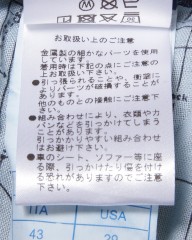 お取扱い上のご注意
金属製の細かなパーツを使用
しています。
着用時は下記の点にご注意の
上お召し下さい。
●引っ張られることや、衝撃に
よりパーツが破損することが
あります。
他のものとの接触にご注意下
さい。
●組み合わせにより、衣類やカ
バンなどを引っかけてしまう
ことがあります。
引っかかりやすい組み合わせ
はお避け下さい。
●車のシート、ソファー等に座
る際、引っかけたり傷を付け
る恐れがありますのでご注意
下さい。
ITA USA
43 29